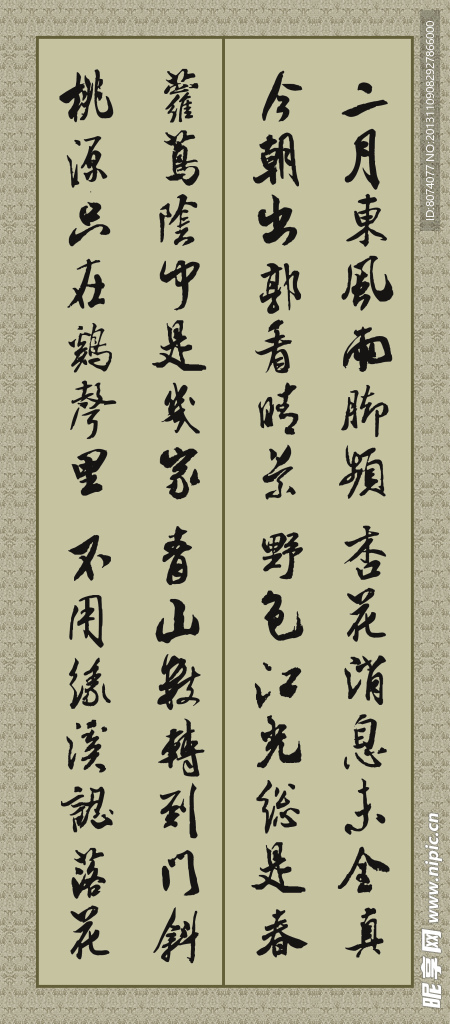 二月東風雨脚頻 杏花消息未全真
今朝出郭看晴景 野色江光総是春
蘿蔦陰中是幾家 青山數轉到門斜
桃源只在鷄聲里 不用緣溪認落花
ID:8074077 NO:20131109082927866000
昵享网 www.nipic.cn